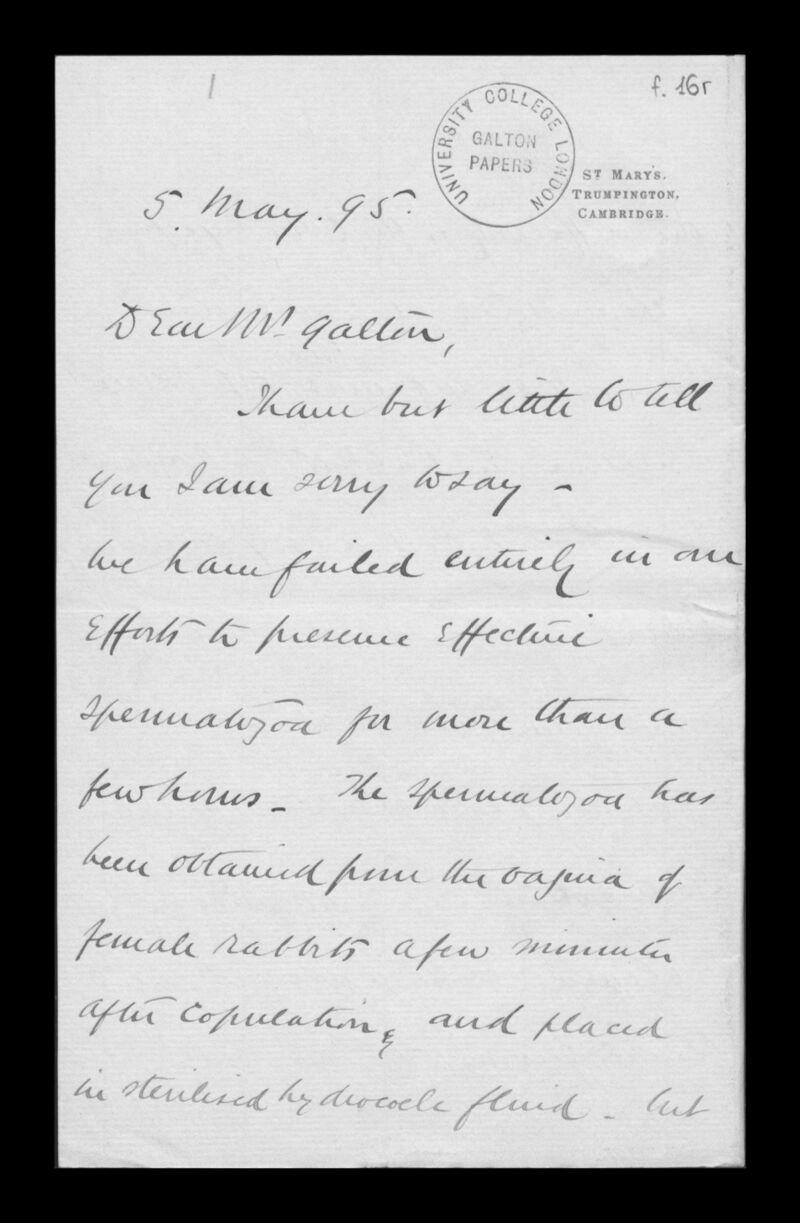 1
f. 16r
UNIVERSITY COLLEGE LONDON
GALTON
PAPERS
ST MARY'S.
TRUMPINGTON,
CAMBRIDGE.
5. May. 95.
Dear Mr Galton,
I have but little to tell
you I am sorry to say -
We have failed entirely in our
Efforts to preserve Effective
spermatozoa for more than a
few hours - The spermatozoa has
been obtained from the vagina of
female rabbits a few minutes
after copulation, and placed
in sterilised hydrocele fluid - but